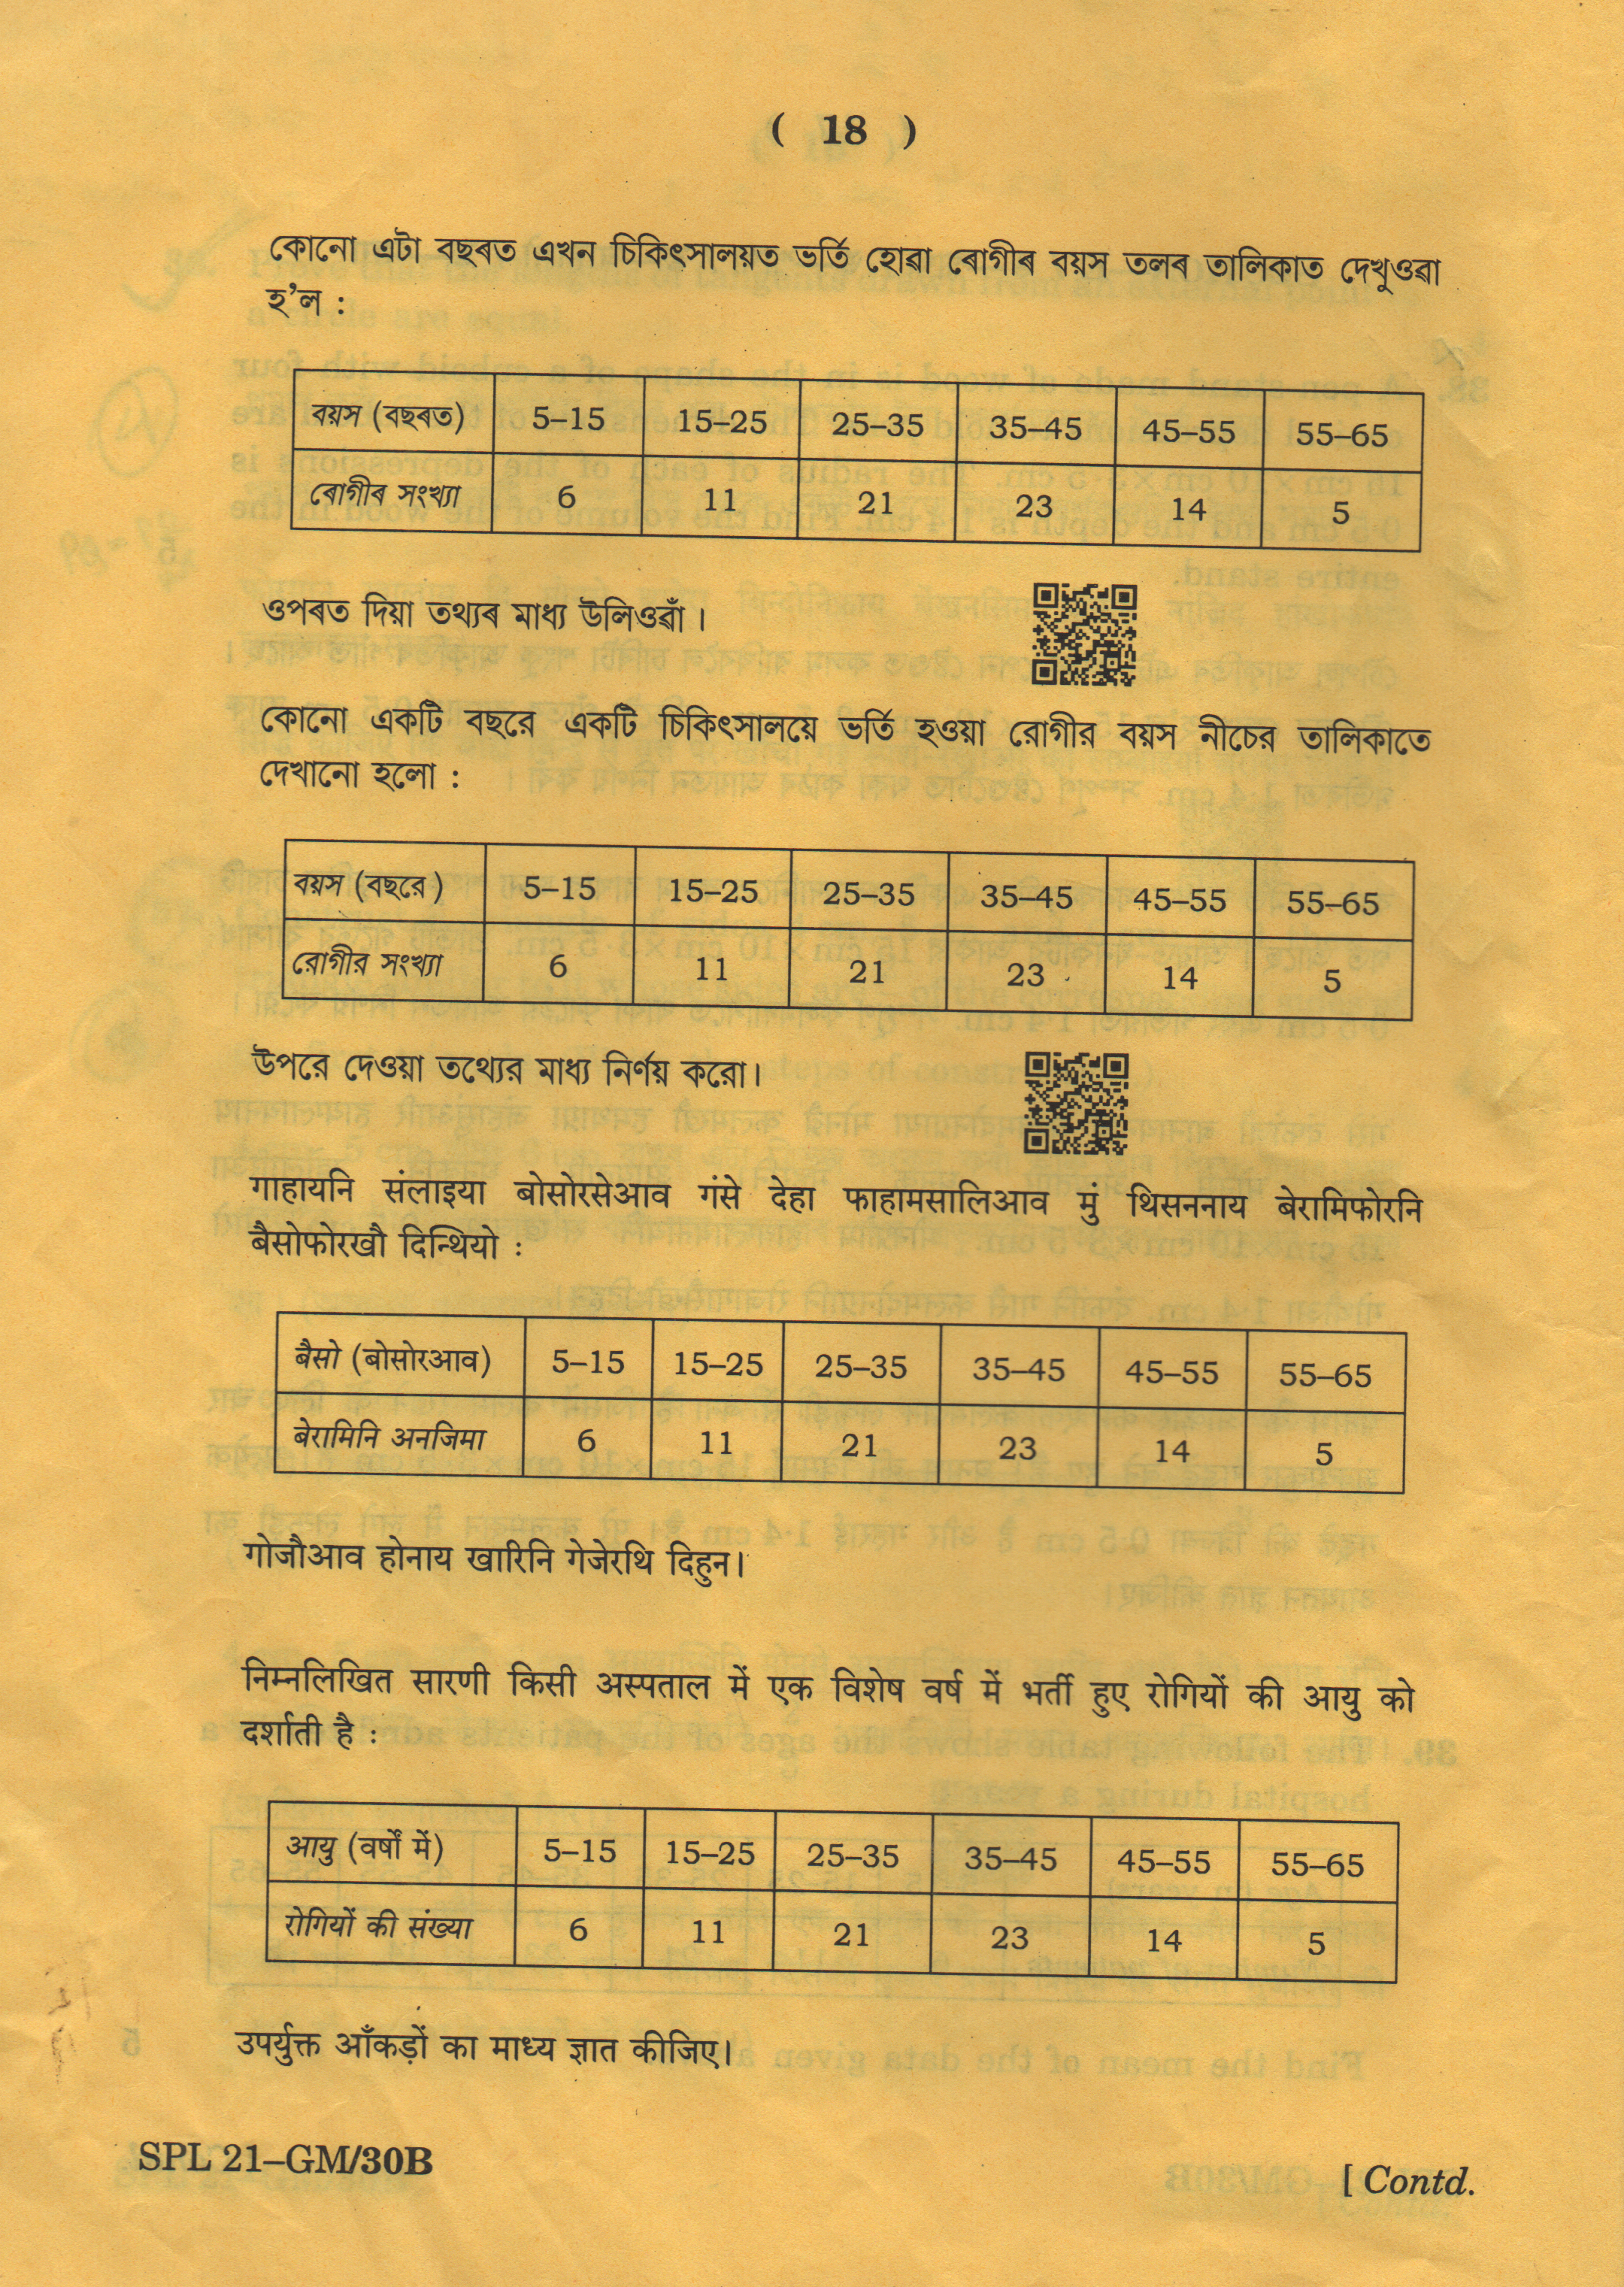 ( 18 )
কোনো এটা বছৰত এখন চিকিৎসালয়ত ভৰ্তি হোৱা ৰোগীৰ বয়স তলৰ তালিকাত দেখুওৱা
হ’ল :
বয়স (বছৰত) 5–15 15–25 25–35 35–45 45–55 55–65
ৰোগীৰ সংখ্যা 6 11 21 23 14 5
ওপৰত দিয়া তথ্যৰ মাধ্য উলিওৱাঁ।
কোনো একটি বছরে একটি চিকিৎসালয়ে ভর্তি হওয়া রোগীর বয়স নীচের তালিকাতে
দেখানো হলো :
বয়স (বছরে) 5–15 15–25 25–35 35–45 45–55 55–65
রোগীর সংখ্যা 6 11 21 23 14 5
উপরে দেওয়া তথ্যের মাধ্য নির্ণয় করো।
गाहायनि संलाइया बोसोरसेआव गंसे देहा फाहामसालिआव मुं थिसननाय बेरामिफोरनि
बैसोफोरखौ दिन्थियो :
बैसो (बोसोरआव) 5–15 15–25 25–35 35–45 45–55 55–65
बेरामिनि अनजिमा 6 11 21 23 14 5
गोजौआव होनाय खारिनि गेजेरथि दिहुन।
निम्नलिखित सारणी किसी अस्पताल में एक विशेष वर्ष में भर्ती हुए रोगियों की आयु को
दर्शाती है :
आयु (वर्षों में) 5–15 15–25 25–35 35–45 45–55 55–65
रोगियों की संख्या 6 11 21 23 14 5
उपर्युक्त आँकड़ों का माध्य ज्ञात कीजिए।
SPL 21–GM/30B
[ Contd.